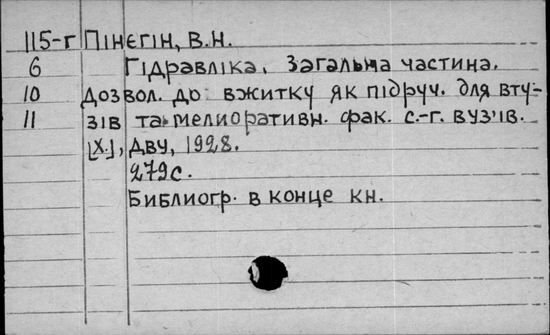 115-г Пінєгін, В.Н.
6 Гідравліка. Загальна частина.
10 Дозвол. до вжитку як підруч. для вту-
11 зів та мелиоративн. фак. с.-г. вуз'ів.
[Х.], ДВУ, 1928.
279с.
Библиогр. в конце кн.